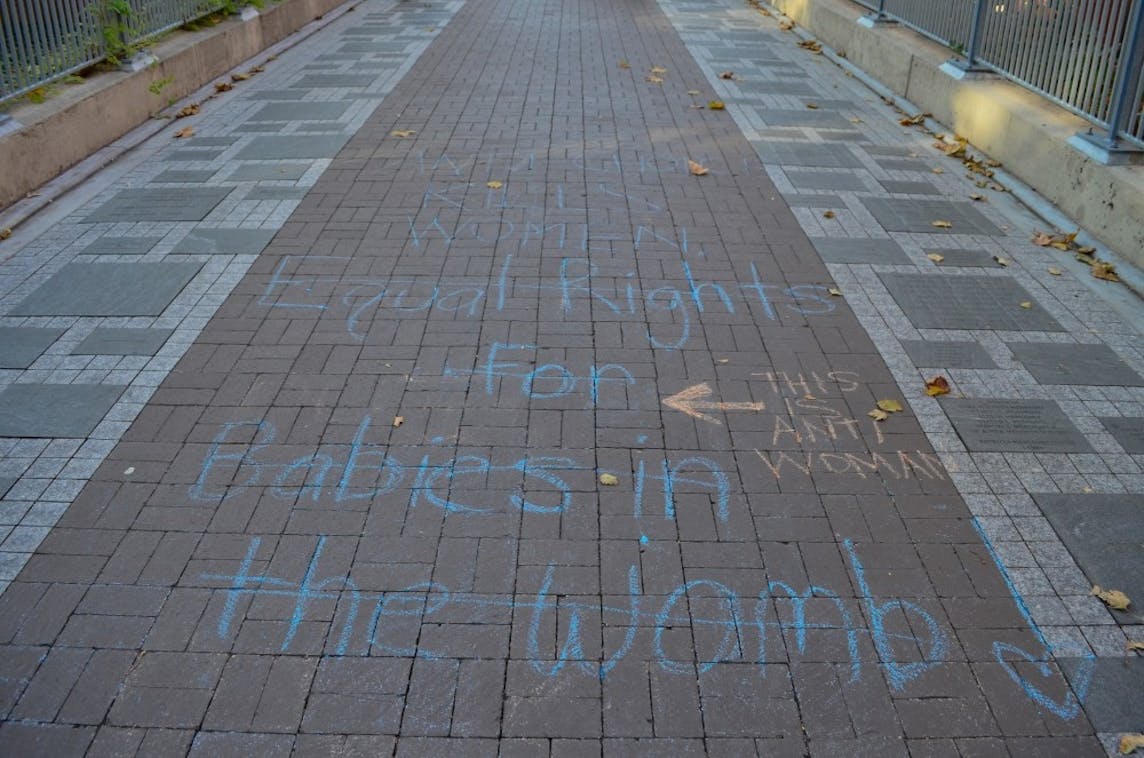 KILLS
WOMEN,
Equal Rights
For
Babies in
the Womb
THIS
IS
ANTI
WOMAN